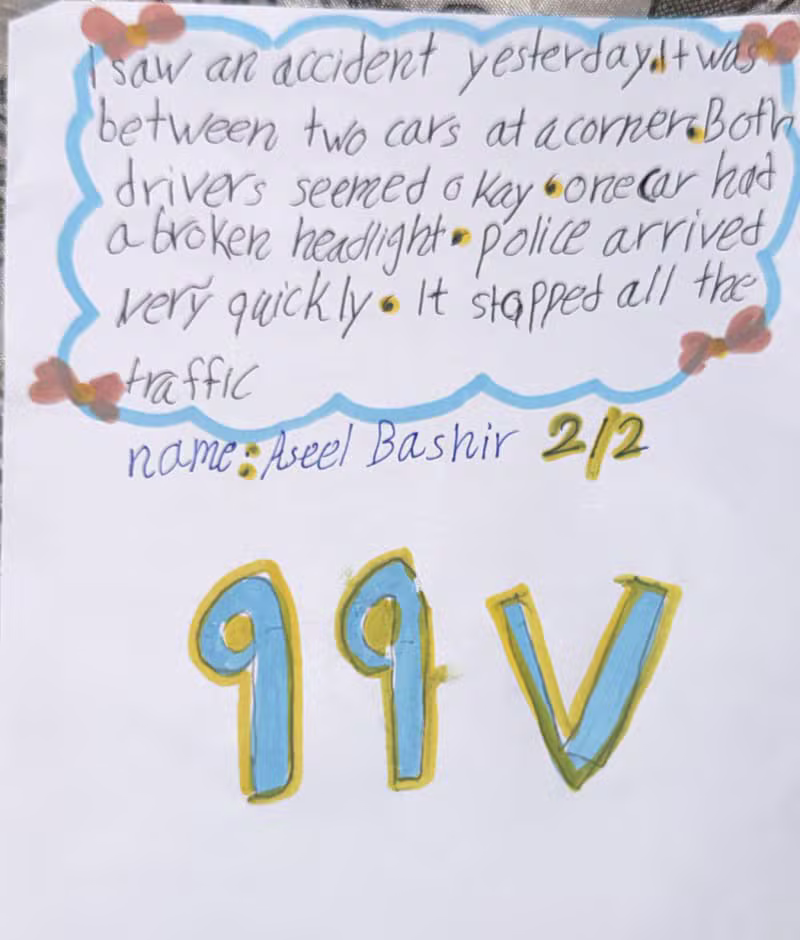 I saw an accident yesterday.It was
between two cars at a corner.Both
drivers seemed okay.one car had
a broken headlight.police arrived
very quickly.It stopped all the
traffic
name:Aseel Bashir 2/2
٩٩٧